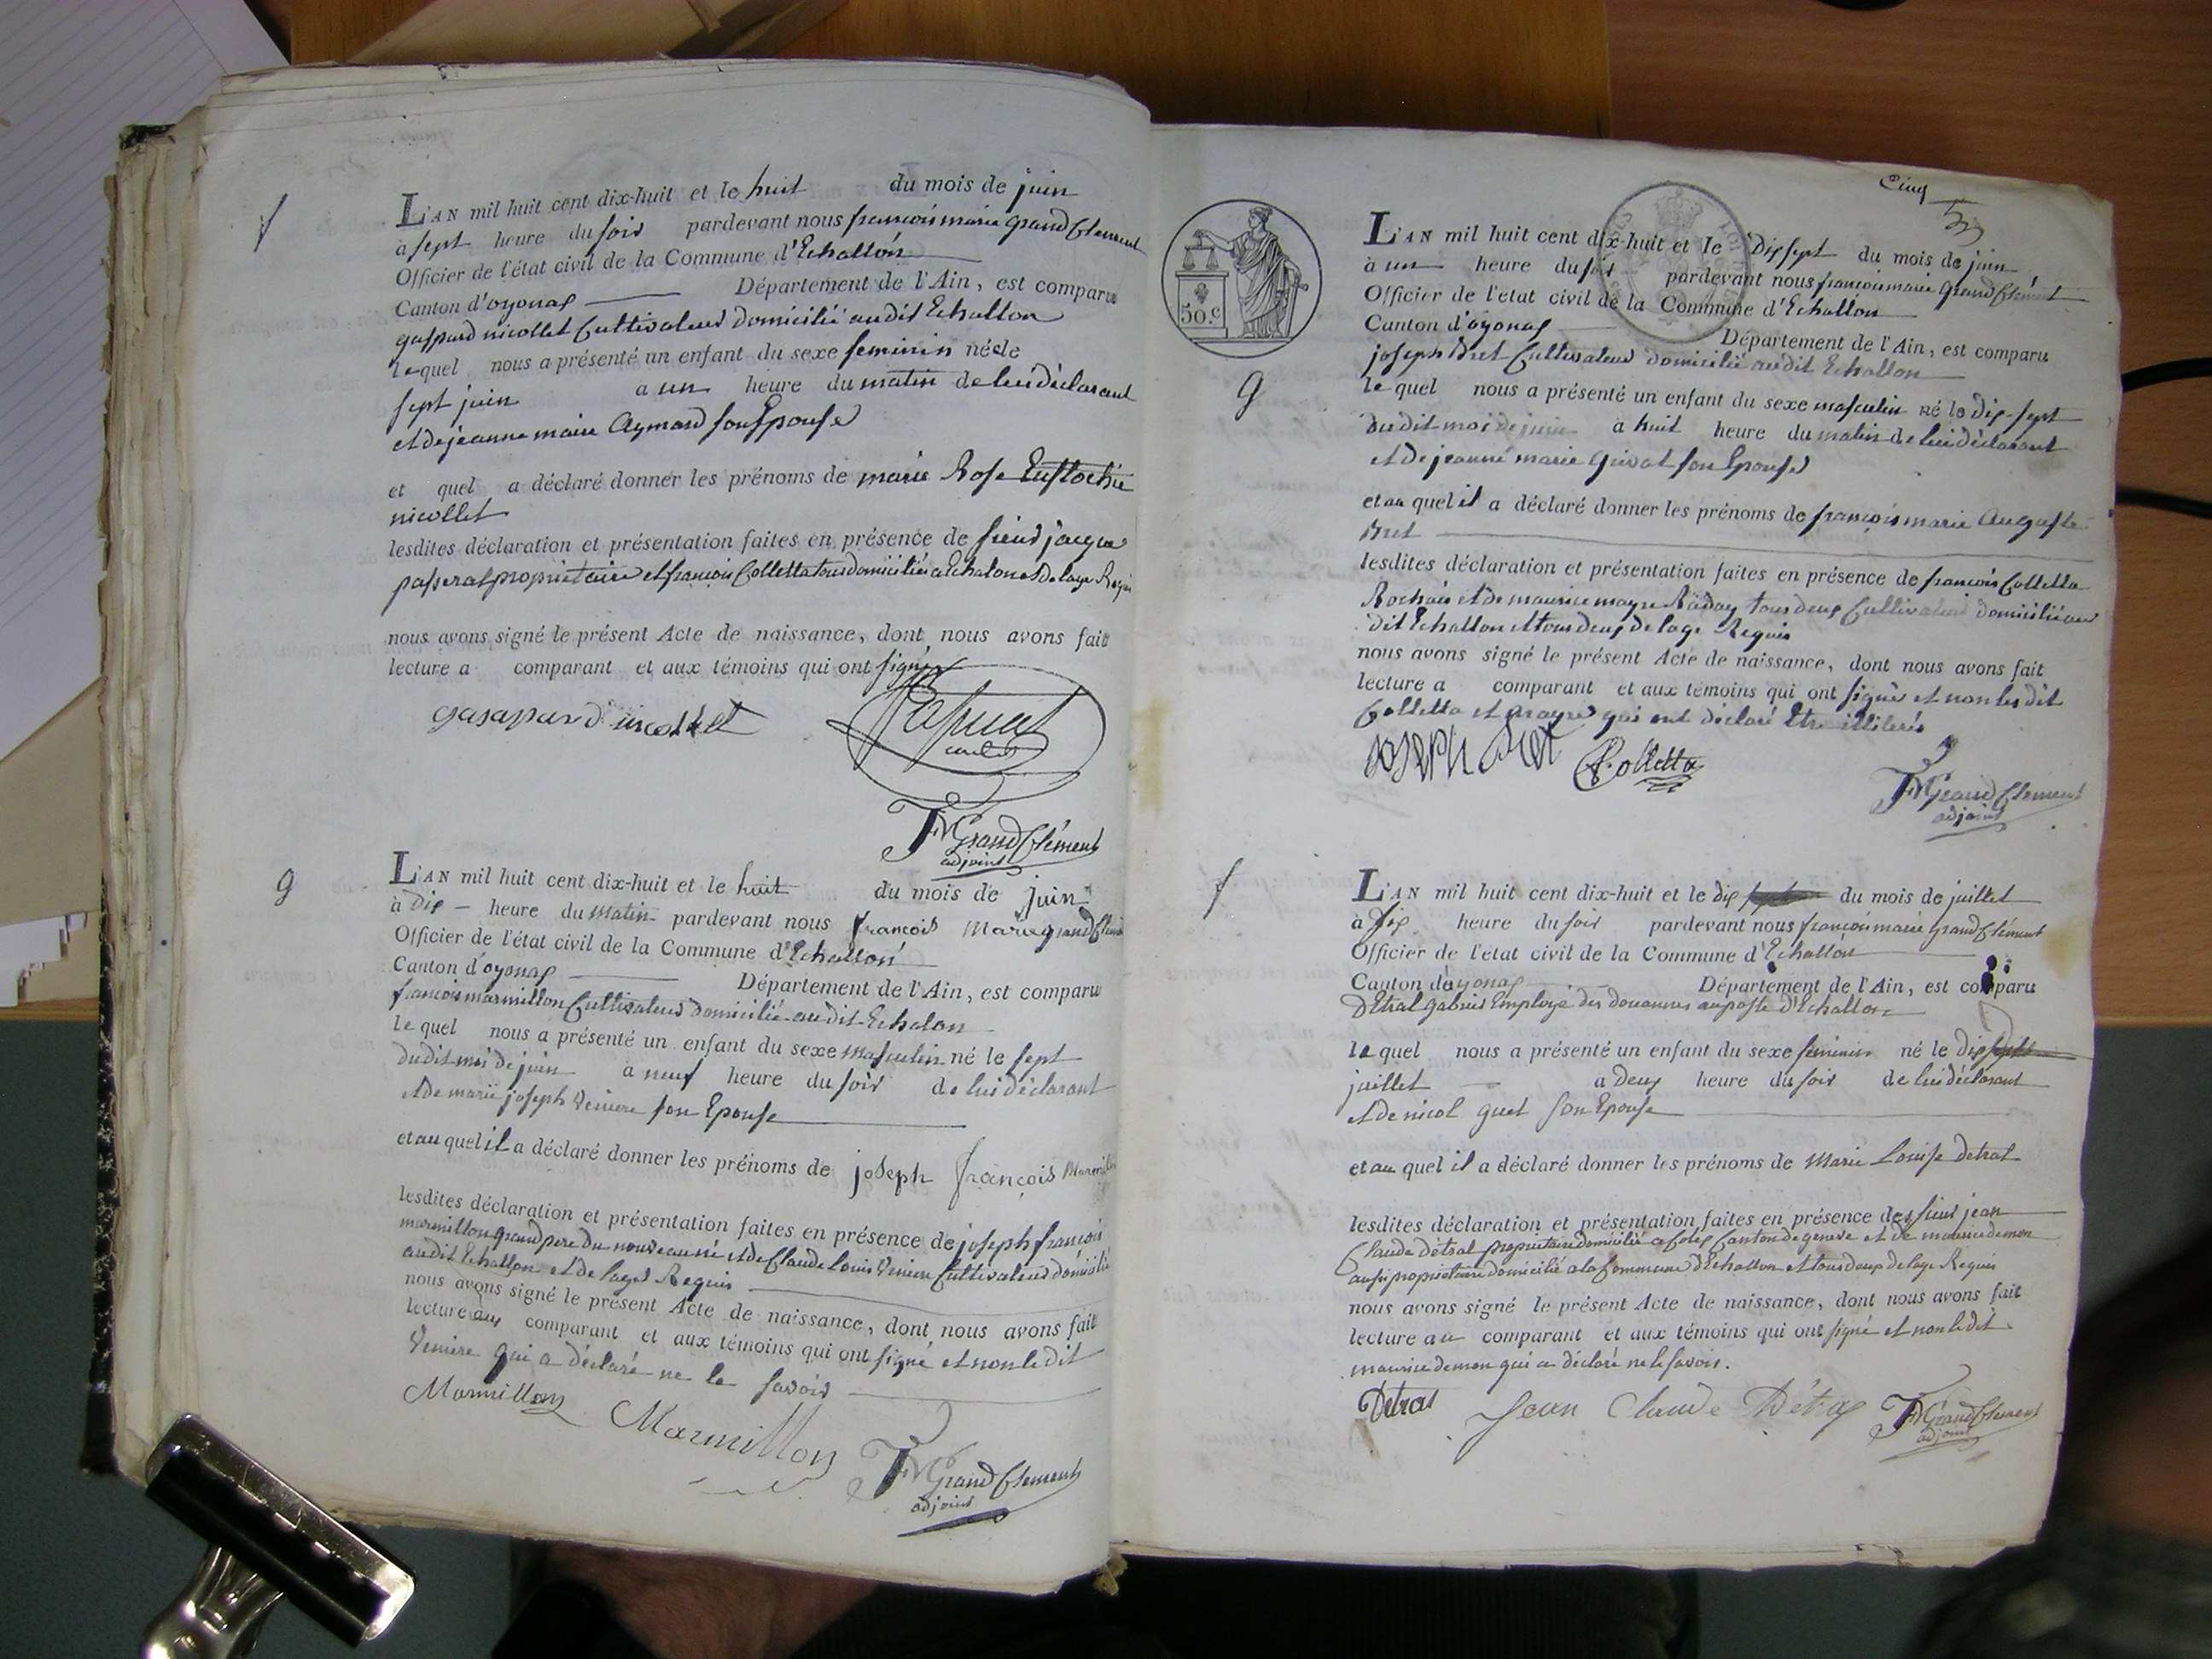 f
L'AN mil huit cent dix-huit et le huit du mois de juin
à sept heure du soir pardevant nous françois marie grandClement
Officier de l'état civil de la Commune d'Echallon
Canton d'oyonax Département de l'Ain, est comparu
gaspard nicollet Cultivateur domicilié audit Echallon
lequel nous a présenté un enfant du sexe feminin né de le
sept juin a un heure du matin de lui déclarant
et de jeanne marie Aymard son Epouse
et quel a déclaré donner les prénoms de marie Rose Eustochie
nicollet
lesdites déclaration et présentation faites en présence de sieur jacque
passerat proprietaire et françois Colletta tous domiciliés a Echalon et de lage Requis
nous avons signé le présent Acte de naissance, dont nous avons fait
lecture a comparant et aux témoins qui ont signé
gasapard nicollet
FMGrandClément
adjoint
g
L'AN mil huit cent dix-huit et le huit du mois de juin
à dix heure du Matin pardevant nous françois Marie grandClem
Officier de l'état civil de la Commune d'Echallon
Canton d'oyonax Département de l'Ain, est comparu
françois marmillon Cultivateur domicilié audit Echalon
le quel nous a présenté un enfant du sexe masculin né le sept
dudit moi de juin à neuf heure du soir de lui déclarant
et de marie joseph Veniere son Epouse
et au quel il a déclaré donner les prénoms de joseph françois Marmillon
lesdites déclaration et présentation faites en présence de joseph françois
marmillon grand pere du nouveau né et de Claude Louis Veniere Cultivateur domicilié
audit Echallon et de lage Requis
nous avons signé le présent Acte de naissance, dont nous avons fait
lecture aux comparant et aux témoins qui ont signé et non le dit
Veniere qui a déclaré ne le savoir
Marmillon Marmillon FMGrandClement
adjoint
Cinq
50.c
L'AN mil huit cent dix-huit et le dixsept du mois de juin
à un heure du soir pardevant nous françois marie GrandClément
Officier de l'état civil de la Commune d'Echallon
Canton d'oyonax Département de l'Ain, est comparu
joseph Bret Cultivateur domicilié audit Echallon
g
le quel nous a présenté un enfant du sexe masculin né le dix-sept
dudit moi de juin à huit heure du matin de lui déclarant
et de jeanne marie Givat son Epouse
et au quel il a déclaré donner les prénoms de françois marie Auguste
Bret
lesdites déclaration et présentation faites en présence de françois Colletta
Rochaix et de maurice mayre Raday tous deux Cultivateur domicilié au
dit Echallon et tous deux de lage Requis
nous avons signé le présent Acte de naissance, dont nous avons fait
lecture a comparant et aux témoins qui ont signés et non les dit
Colletta et mayre qui ont déclaré Etre illiterés
JOSEPH Bret Colletta
FMGrandClement
adjoint
f
L'AN mil huit cent dix-huit et le dix du mois de juillet
à six heure du soir pardevant nous françois marie GrandClément
Officier de l'état civil de la Commune d'Echallon
Canton d'oyonax Département de l'Ain, est comparu
Détral gabriel Employé des douannes au poste d'Echallon
le quel nous a présenté un enfant du sexe feminin né le dix
juillet a deux heure du soir de lui déclarant
et de nicol guet son Epouse
et au quel il a déclaré donner les prénoms de Marie Louise detral
lesdites déclaration et présentation faites en présence des sieur jean
Claude Détral proprietaire domicilié a Colex Canton de geneve et de maurice demon
aussi proprietaire domicilié a la Commune d'Echallon et tous deux de lage Requis
nous avons signé le présent Acte de naissance, dont nous avons fait
lecture au comparant et aux témoins qui ont signé et non le dit
maurice demon qui a déclaré ne le savoir.
Detral Jean Claude Détral FMGrandClement
adjoint